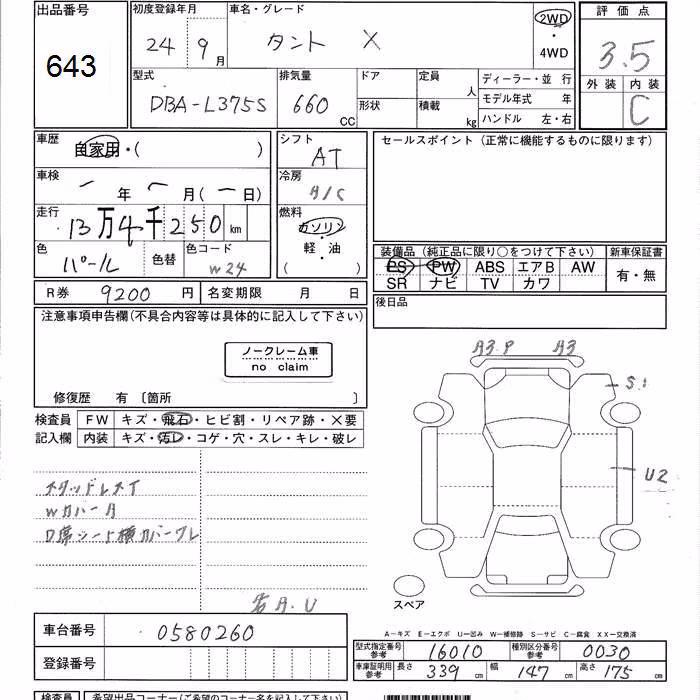 出品番号 初度登録年月 車名・グレード 2WD 評価点
643 24年 9月 タント X 4WD 3.5
外装 内装
C
型式 排気量 ドア 定員 人 ディーラー・並行
DBA-L375S 660 CC 形状 積載 kg モデル年式 年
ハンドル 左・右
車歴 自家用・( ) シフト AT セールスポイント(正常に機能するものに限ります)
車検 年 月(一日) 冷房 A/C
走行 13万4千250km 燃料 ガソリン
軽・油
( )
色 パール 色替 色コード W24
装備品(純正品に限り○をつけて下さい) 新車保証書
PS PW ABS エアB AW 有・無
SR ナビ TV カワ
R券 9200円 名変期限 月 日
後日品
注意事項申告欄(不具合内容等は具体的に記入して下さい)
ノークレーム車
no claim
修復歴 有 〔箇所 〕
検査員 FW キズ・飛石・ヒビ割・リペア跡・×要
記入欄 内装 キズ・汚レ・コゲ・穴・スレ・キレ・破レ
A3.P A3
S.1
U2
スタッドレスT
Wカバー
D席シート横カバーワレ
A.U
スペア
A-キズ E-エクボ U-凹み W-補修跡 S-サビ C-腐食 XX-交換済
車台番号 0580260
登録番号
型式指定番号参考 16010 種別区分番号参考 0030
車庫証明用参考 長さ 339cm 幅 147cm 高さ 175cm
検査員 希望出品コーナー(ご希望のコーナー名を記入して下さい)